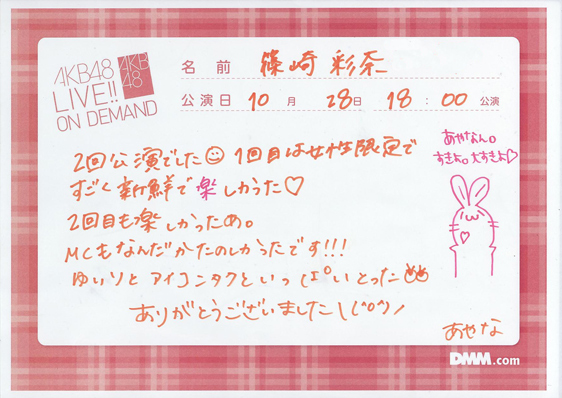 AKB48
LIVE!!
ON DEMAND
AKB
48
名前 篠崎 彩奈
公演日 10月 28日 18:00 公演
2回公演でした 1回目は女性限定で
すごく新鮮で楽しかった♡
2回目も楽しかっため。
MCもなんだかたのしかったです!!!
ゆいりとアイコンタクトいっぱいとった
ありがとうございました\(^o^)/
あやなん。
すきよ。大すきよ♡
あやな
DMM.com